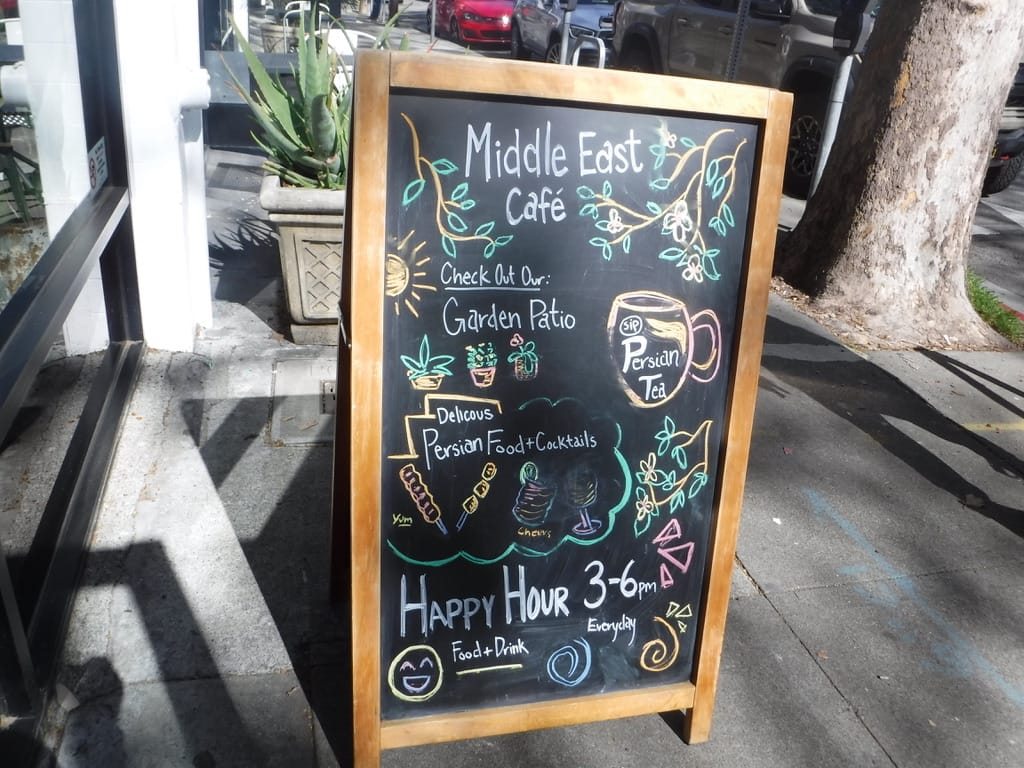 Middle East
Café
Check Out Our:
Garden Patio
Sip
Persian
Tea
Delicous
Persian Food + Cocktails
Yum
Cheers
Happy Hour 3-6pm
Everyday
Food + Drink